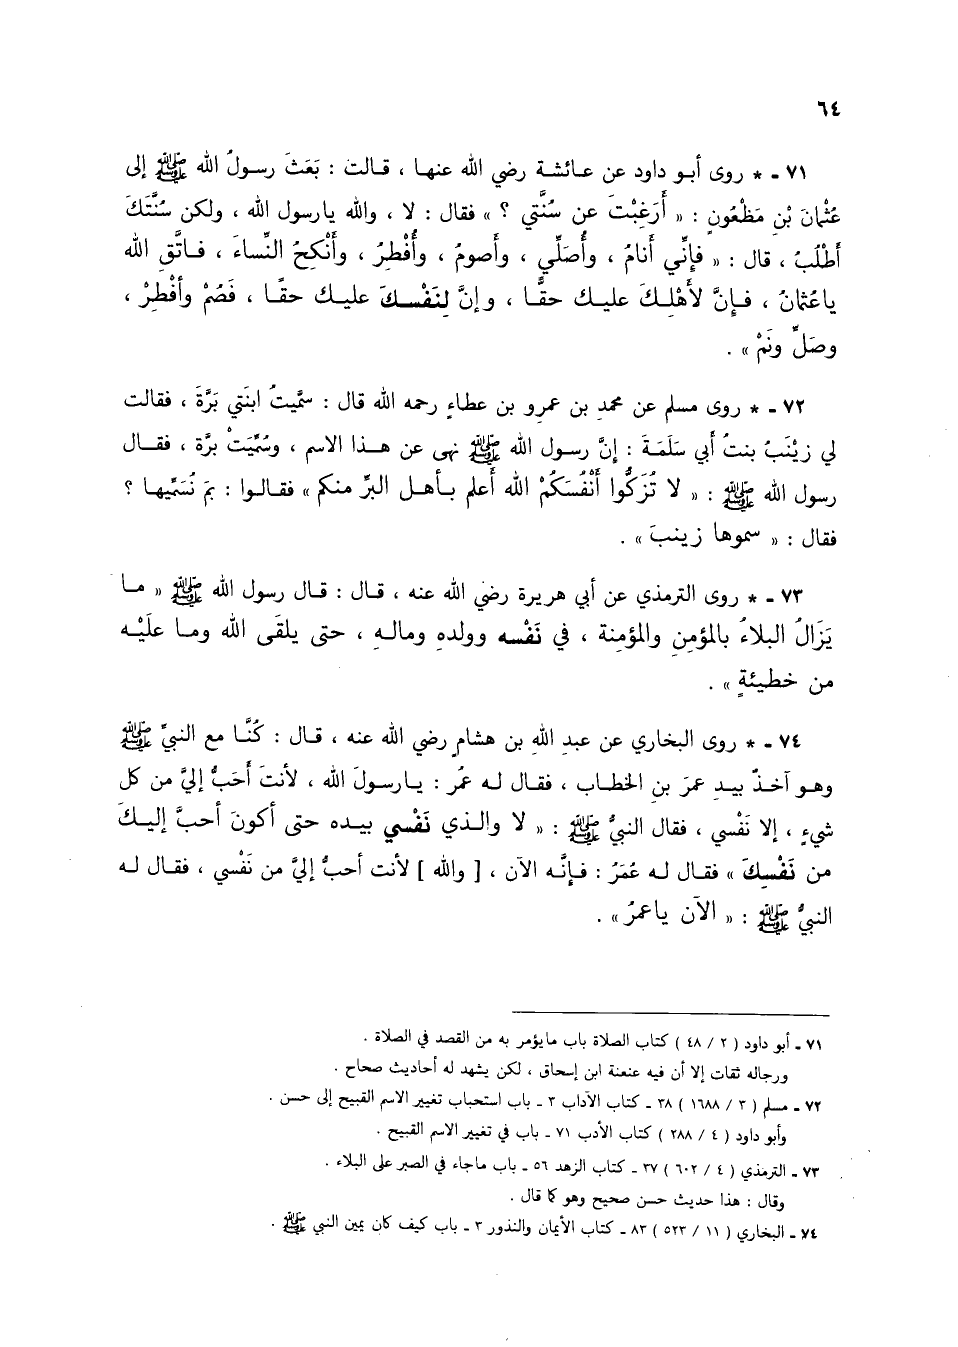 ٦٤
٧١ - * روى أبو داود عن عائشة رضي الله عنها ، قالت : بَعَثَ رسولُ الله ﷺ إلى
عثمانَ بْنِ مَظْعُونٍ : « أَرَغِبْتَ عن سُنَّتي ؟ » فقال : لا ، والله يارسول الله ، ولكن سُنَّتَكَ
أَطْلُبُ ، قال : « فإنِّي أنامُ ، وأُصَلِّي ، وأَصومُ ، وأُفْطِرُ ، وأَنْكِحُ النِّساءَ ، فاتَّقِ الله
ياعُثمانُ ، فإنَّ لأَهْلِكَ عليك حقًّا ، وإنَّ لِنَفْسكَ عليك حقًّا ، فَصُمْ وأفْطِرْ ،
وصَلِّ ونَمْ » .
٧٢ - * روى مسلم عن محمد بن عمرو بن عطاءٍ رحمه الله قال : سمَّيتُ ابنَتي بَرَّةَ ، فقالت
لي زيْنَبُ بنتُ أبي سَلَمَةَ : إنَّ رسول الله ﷺ نهى عن هذا الاسم ، وسُمِّيَتْ برَّة ، فقال
رسول الله ﷺ : « لا تُزَكُّوا أنْفُسَكُمْ الله أعلم بأهل البرِّ منكم » فقالوا : بمَ نُسَمِّيها ؟
فقال : « سموها زينبَ » .
٧٣ - * روى الترمذي عن أبي هريرة رضي الله عنه ، قال : قال رسول الله ﷺ « ما
يَزَالُ البلاءُ بالمؤمنِ والمؤمِنة ، في نَفْسه وولدهِ ومالهِ ، حتى يلقَى الله وما علَيْه
من خطيئةٍ » .
٧٤ - * روى البخاري عن عبدِ اللهِ بن هشامٍ رضي الله عنه ، قال : كُنَّا مع النبيِّ ﷺ
وهو آخذٌ بيدِ عمرَ بنِ الخطاب ، فقال له عمُر : يارسولَ الله ، لأنتَ أَحَبُّ إليَّ من كل
شيءٍ ، إلا نَفْسي ، فقال النبيُّ ﷺ : « لا والذي نَفْسي بيده حتى أكونَ أحبَّ إليكَ
من نَفْسِكَ » فقال له عُمَرُ : فإنَّه الآن ، [ والله ] لأنت أحبُّ إليَّ من نَفْسي ، فقال له
النبيُّ ﷺ : « الآن ياعمرُ » .
٧١ - أبو داود ( ٢ / ٤٨ ) كتاب الصلاة باب مايؤمر به من القصد في الصلاة .
ورجاله ثقات إلا أن فيه عنعنة ابن إسحاق ، لكن يشهد له أحاديث صحاح .
٧٢ - مسلم ( ٣ / ١٦٨٨ ) ٣٨ - كتاب الآداب ٣ - باب استحباب تغيير الاسم القبيح إلى حسن .
وأبو داود ( ٤ / ٢٨٨ ) كتاب الأدب ٧١ - باب في تغيير الاسم القبيح .
٧٣ - الترمذي ( ٤ / ٦٠٢ ) ٣٧ - كتاب الزهد ٥٦ - باب ماجاء في الصبر على البلاء .
وقال : هذا حديث حسن صحيح وهو كما قال .
٧٤ - البخاري ( ١١ / ٥٢٣ ) ٨٣ - كتاب الأيمان والنذور ٣ - باب كيف كان يمين النبي ﷺ .